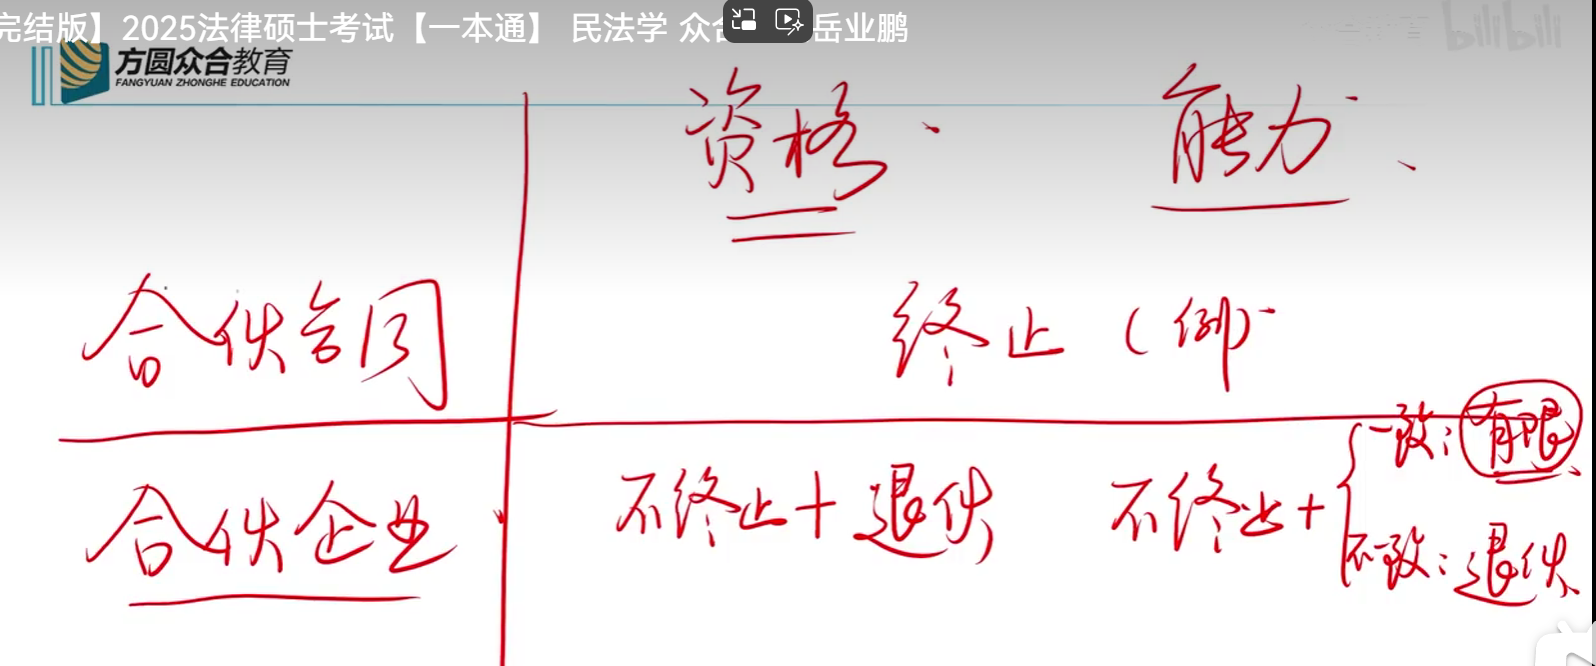 完结版】2025法律硕士考试【一本通】 民法学 众合 岳业鹏
方圆众合教育
FANGYUAN ZHONGHE EDUCATION
bilibili
资格 能力
合伙合同 终止（例）
合伙企业 不终止+退伙 不终止+
一致：有限
不一致：退伙